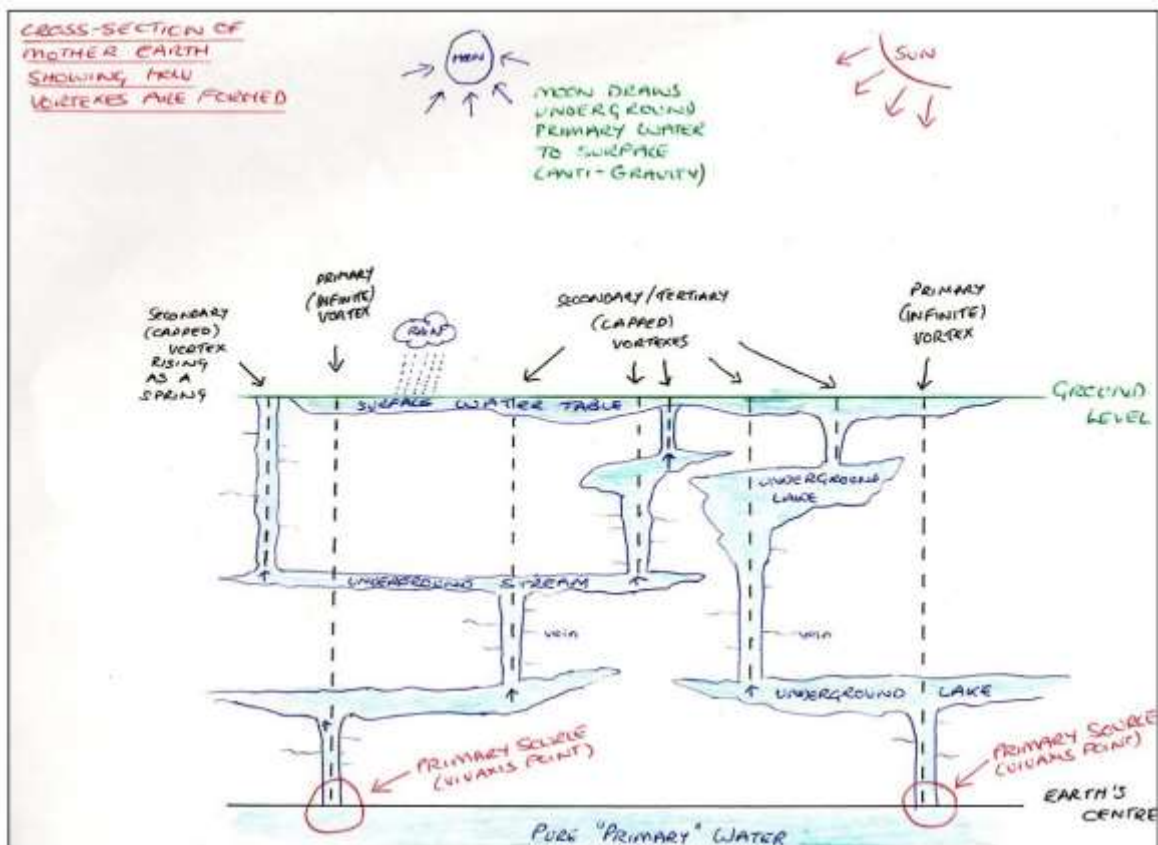 CROSS-SECTION OF
MOTHER EARTH
SHOWING HOW
VORTEXES ARE FORMED
MOON
MOON DRAWS
UNDERGROUND
PRIMARY WATER
TO SURFACE
(ANTI-GRAVITY)
SUN
SECONDARY
(CAPPED)
VORTEX
RISING
AS A
SPRING
PRIMARY
(INFINITE)
VORTEX
RAIN
SECONDARY/TERTIARY
(CAPPED)
VORTEXES
PRIMARY
(INFINITE)
VORTEX
GROUND
LEVEL
SURFACE WATER TABLE
UNDERGROUND
LAKE
UNDERGROUND STREAM
vein
vein
UNDERGROUND LAKE
PRIMARY SOURCE
(VIVAXIS POINT)
PRIMARY SOURCE
(VIVAXIS POINT)
EARTH'S
CENTRE
PURE "PRIMARY" WATER